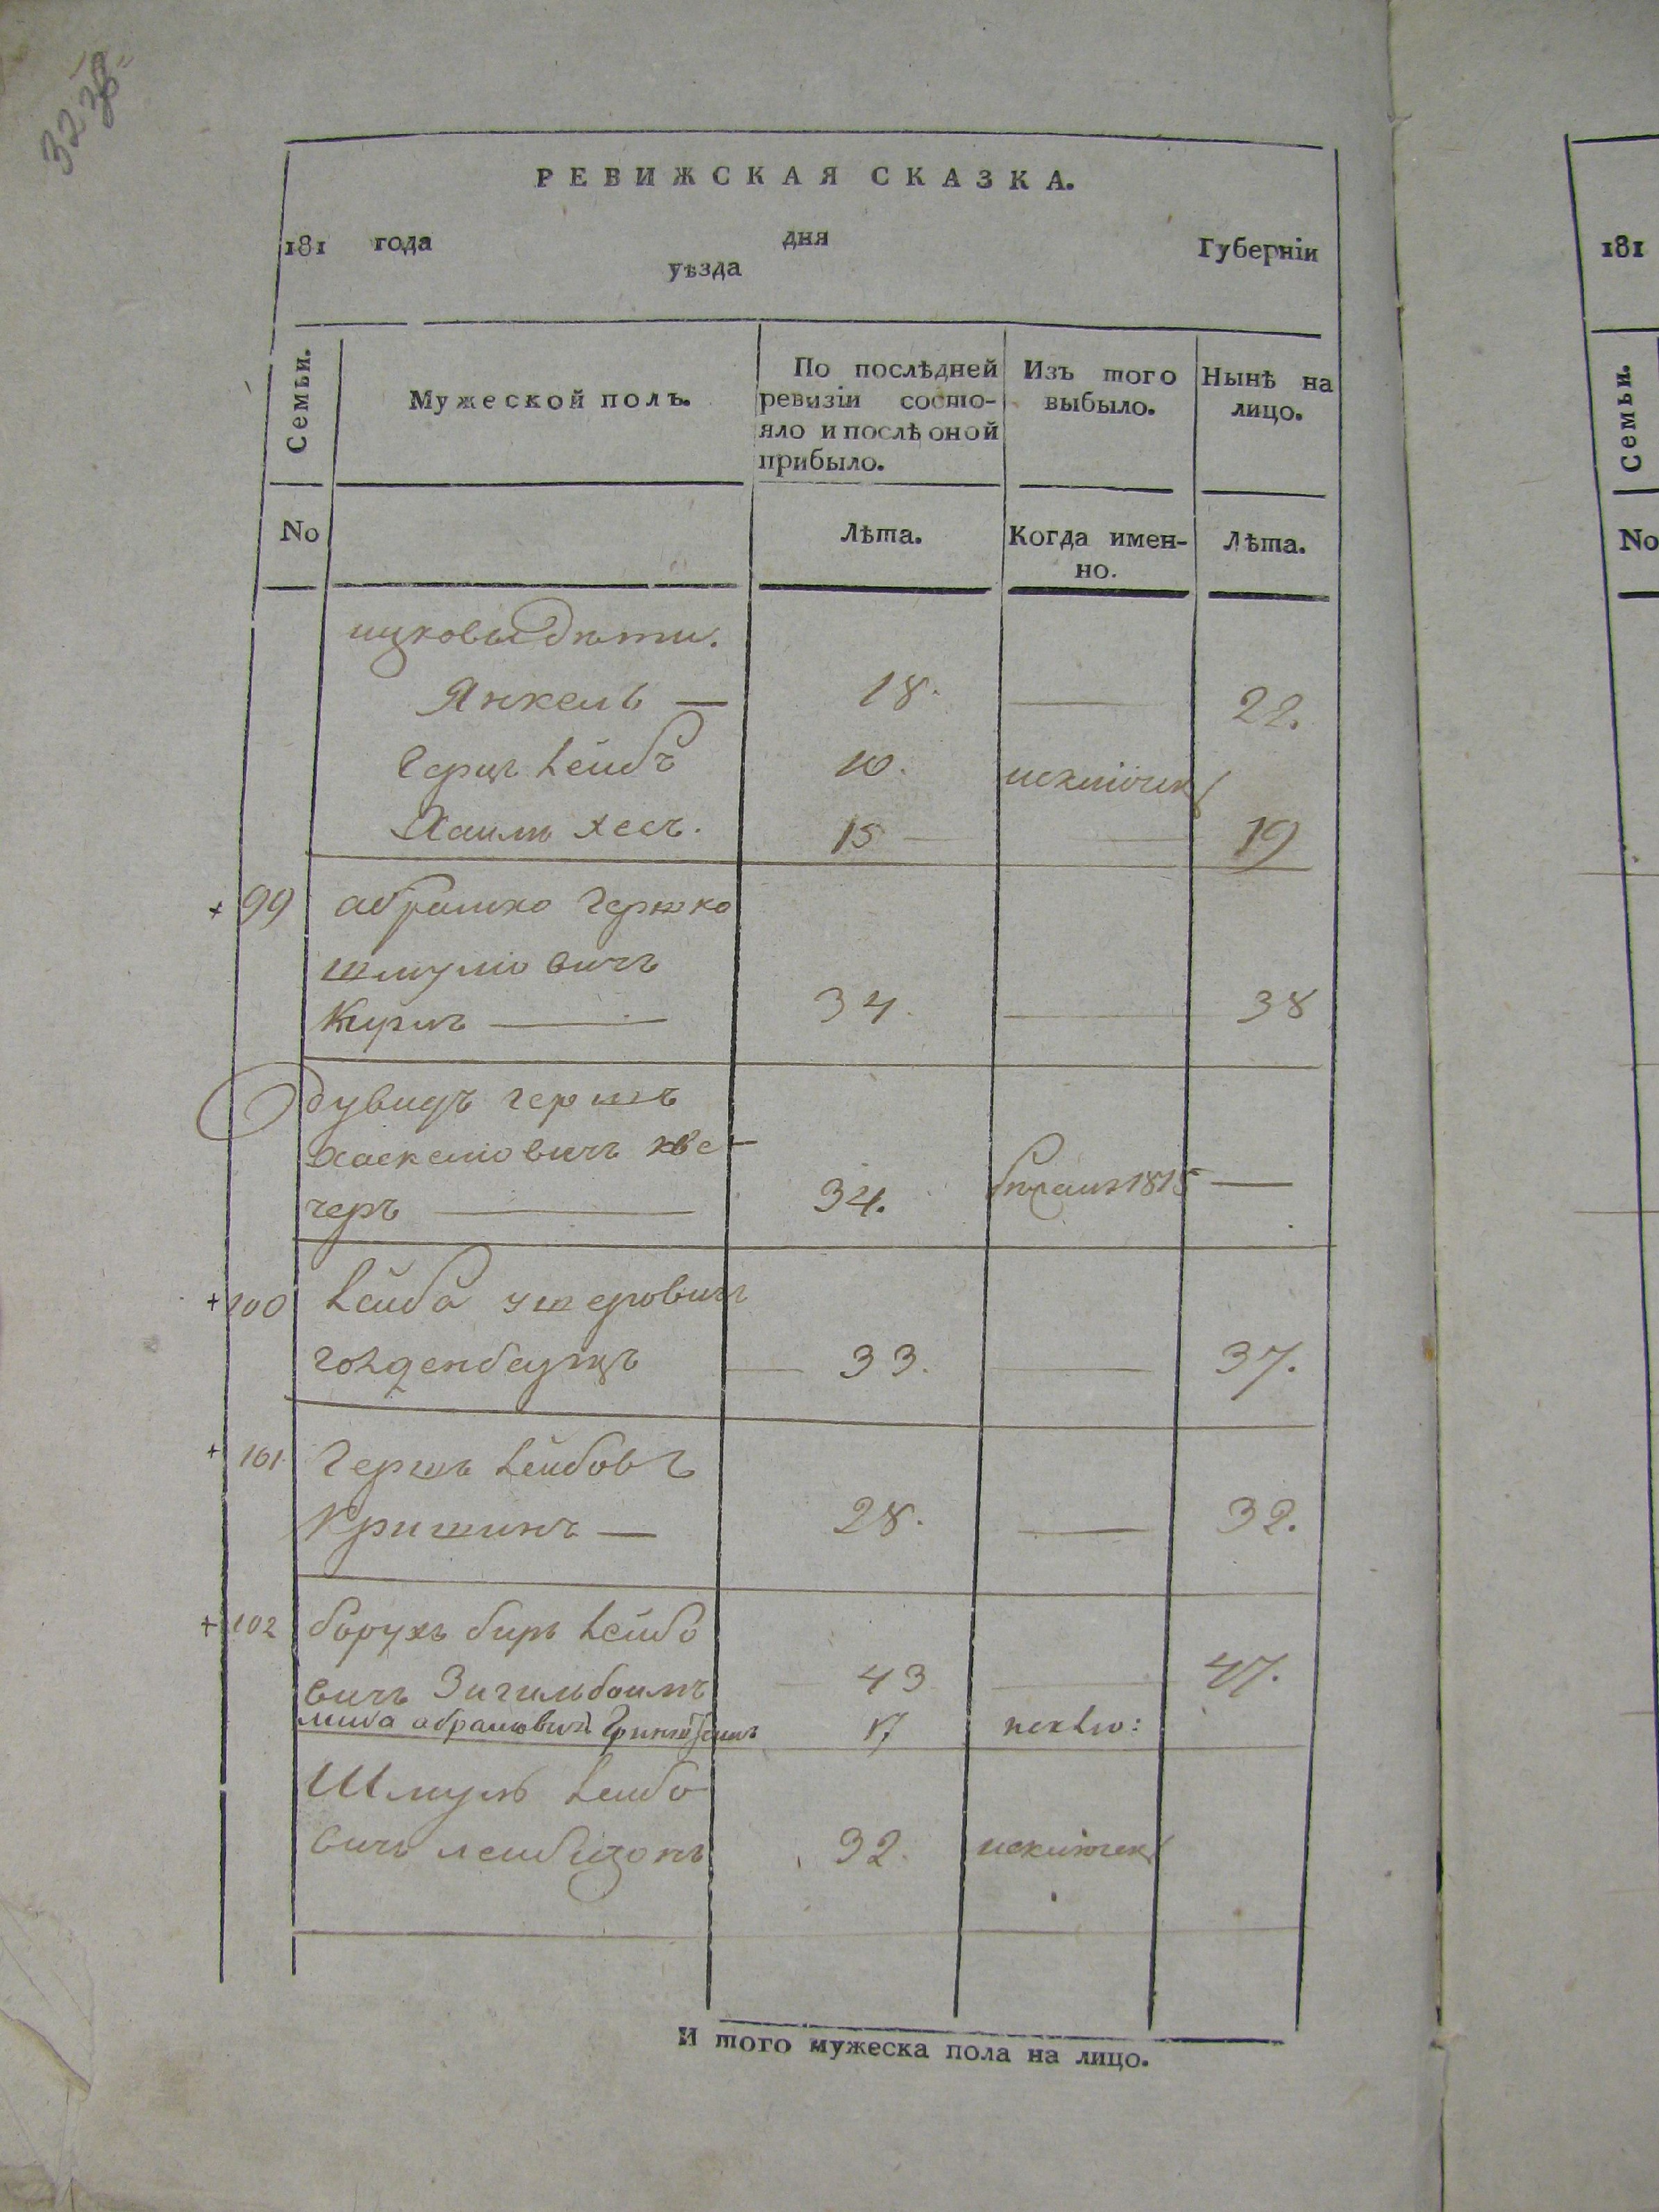 32
РЕВИЖСКАЯ СКАЗКА.
181 года дня Губернїи
уѣзда
Семьи.
Мужеской полъ.
По послѣдней ревизїи состо-
яло и послѣ оной
прибыло.
Изъ того
выбыло.
Нынѣ на
лицо.
No
Лѣта.
Когда имен-
но.
Лѣта.
ицковы дѣти.
Янкель — 18. — 22.
Герш лейбъ 10. исключен
Хаим хесъ. 15 — 19
+ 99 абрамко гершко
шмулiовичъ
34. — 38
дувидъ гершъ
хаскелiовичъ кве-
черъ — 34. 1815 —
+ 100 лейба ушеровичъ
голденбаумъ — 33. — 37.
+ 101 Гершъ лейбовъ
Кришинъ — 28. — 32.
+ 102 борухъ беръ лейбо
вичъ Зигильбоимъ 43 — 47.
абрамовичъ 17 исклю:
Шмуль лейбо
вичъ лейбизонъ 32. исключен
И того мужеска пола на лицо.
181
Семьи.
No